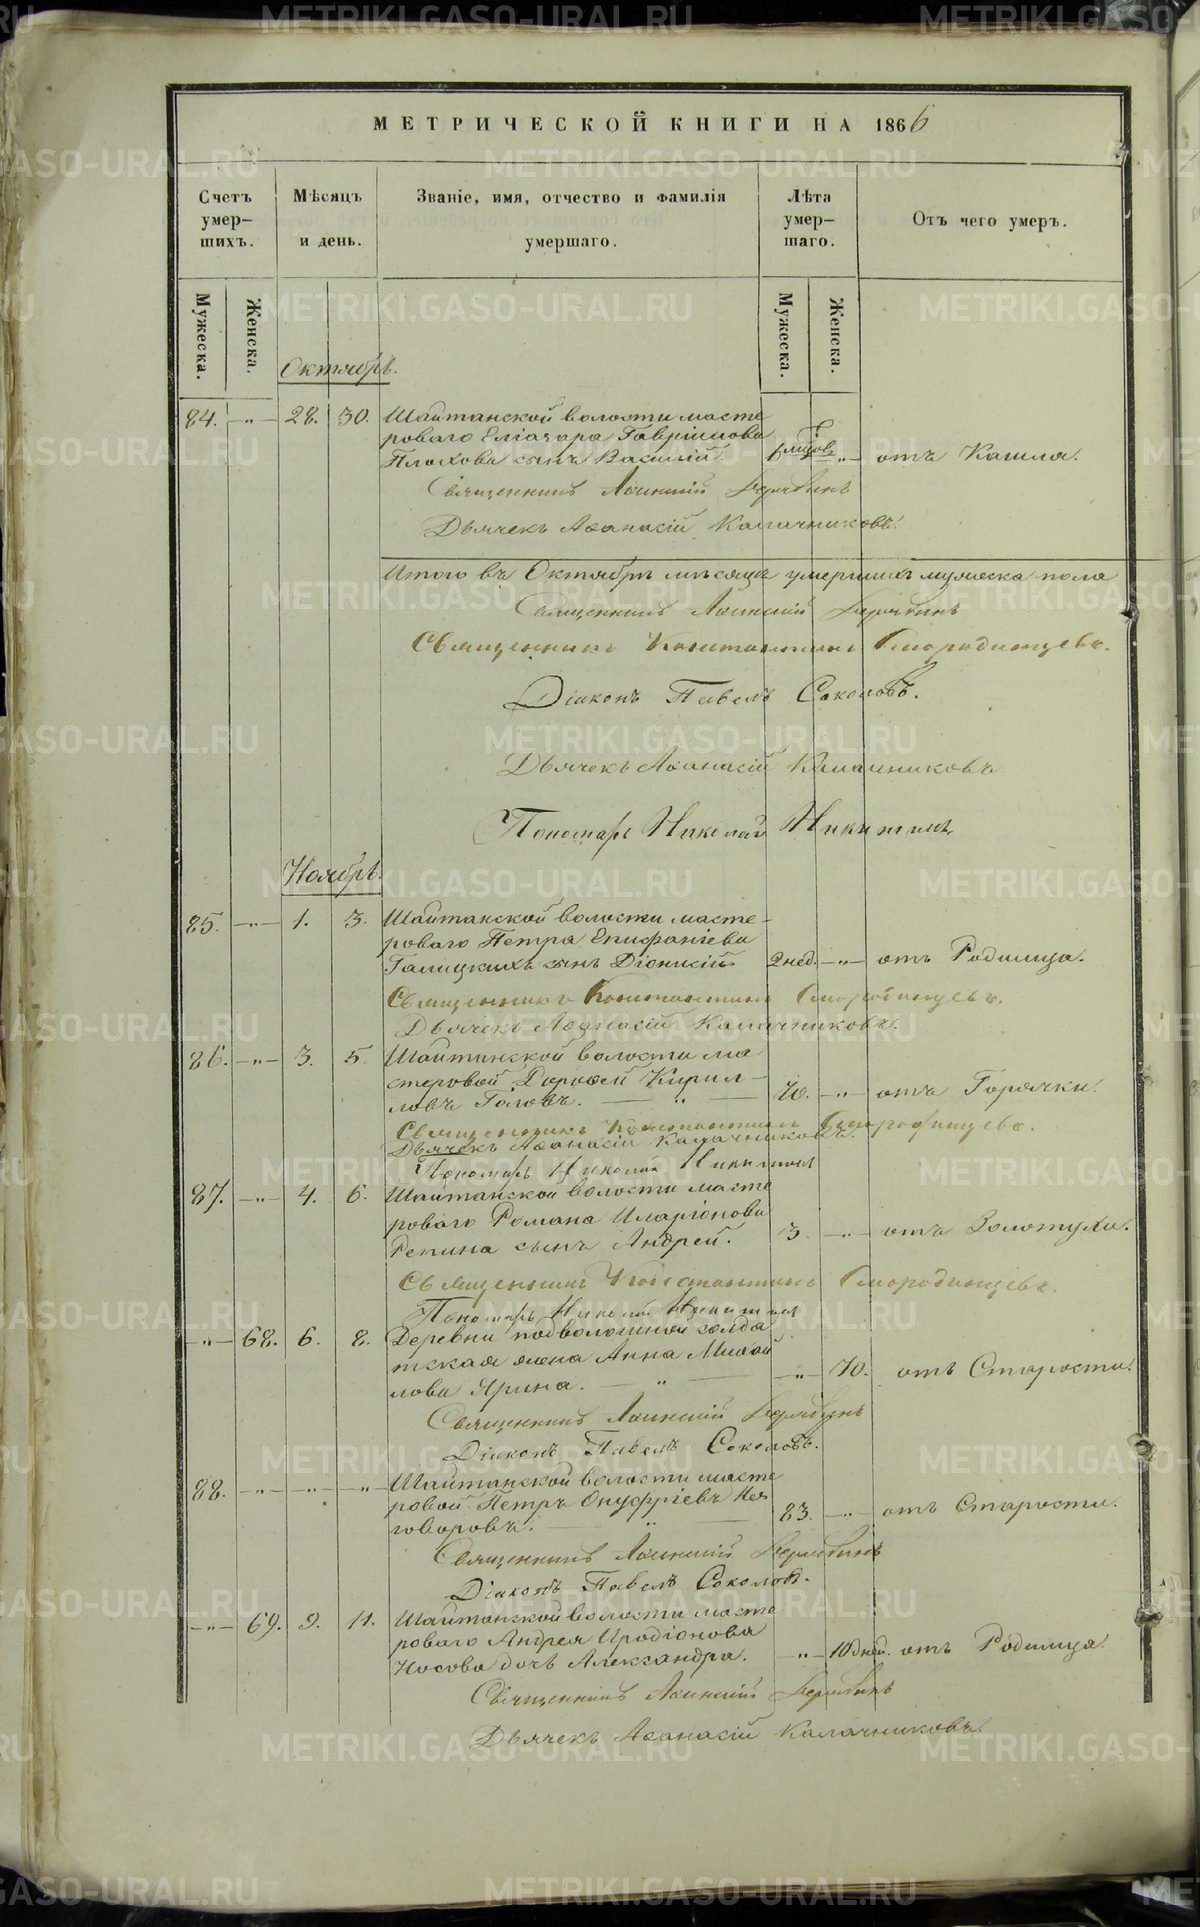 МЕТРИЧЕСКОЙ КНИГИ НА 1866
Счетъ умер-шихъ.
Мѣсяцъ и день.
Званіе, имя, отчество и фамилія умершаго.
Лѣта умер-шаго.
Отъ чего умеръ.
Мужеска. Женска.
Мужеска. Женска.
Октябрь.
84. -„- 28. 30. Шайтанской волости масте
роваго Еліазара Гавріилова
Плохова сынъ Василій. -„- отъ Кашля.
Священникъ
Дьячекъ Аѳанасій Калачниковъ.
Итого въ Октябрѣ мѣсяцѣ умершихъ мужеска пола
Священникъ
Священникъ Константинъ Смородинцевъ.
Діаконъ Павелъ Соколовъ.
Дьячекъ Аѳанасій Калачниковъ
Пономарь Николай Никитинъ
Ноябрь.
85. -„- 1. 3. Шайтанской волости масте-
роваго Петра Епифаніева
Галицкихъ сынъ Діонисій. 2 нед. -„- отъ Родимца.
Священникъ Константинъ Смородинцевъ.
Дьячекъ Аѳанасій Калачниковъ.
86. -„- 3. 5. Шайтанской волости ма
стеровой Дороѳей Кирил-
ловъ Головъ. — „ — 70. -„- отъ Горячки.
Священникъ Константинъ Смородинцевъ.
Дьячекъ Аѳанасій Калачниковъ.
Пономарь Николай Никитинъ
87. -„- 4. 6. Шайтанской волости масте
роваго Романа Иларіонова
Репина сынъ Андрей. 3. -„- отъ Золотухи.
Священникъ Константинъ Смородинцевъ.
Пономарь Николай Никитинъ
-„- 68. 6. 8. Деревни подволошной солда
тская жена Анна Михай
лова Ярина. — „ — -„- 70. отъ Старости.
Священникъ
Діаконъ Павелъ Соколовъ.
88. -„- -„- -„- Шайтанской волости масте
ровой Петръ Онуфріевъ Не
говоровъ. — „ — 83. -„- отъ Старости.
Священникъ
Діаконъ Павелъ Соколовъ.
-„- 69. 9. 11. Шайтанской волости масте
роваго Андрея Иродіонова
Носова дочь Александра. -„- 10 дней. отъ Родимца.
Священникъ
Дьячекъ Аѳанасій Калачниковъ.
METRIKI.GASO-URAL.RU